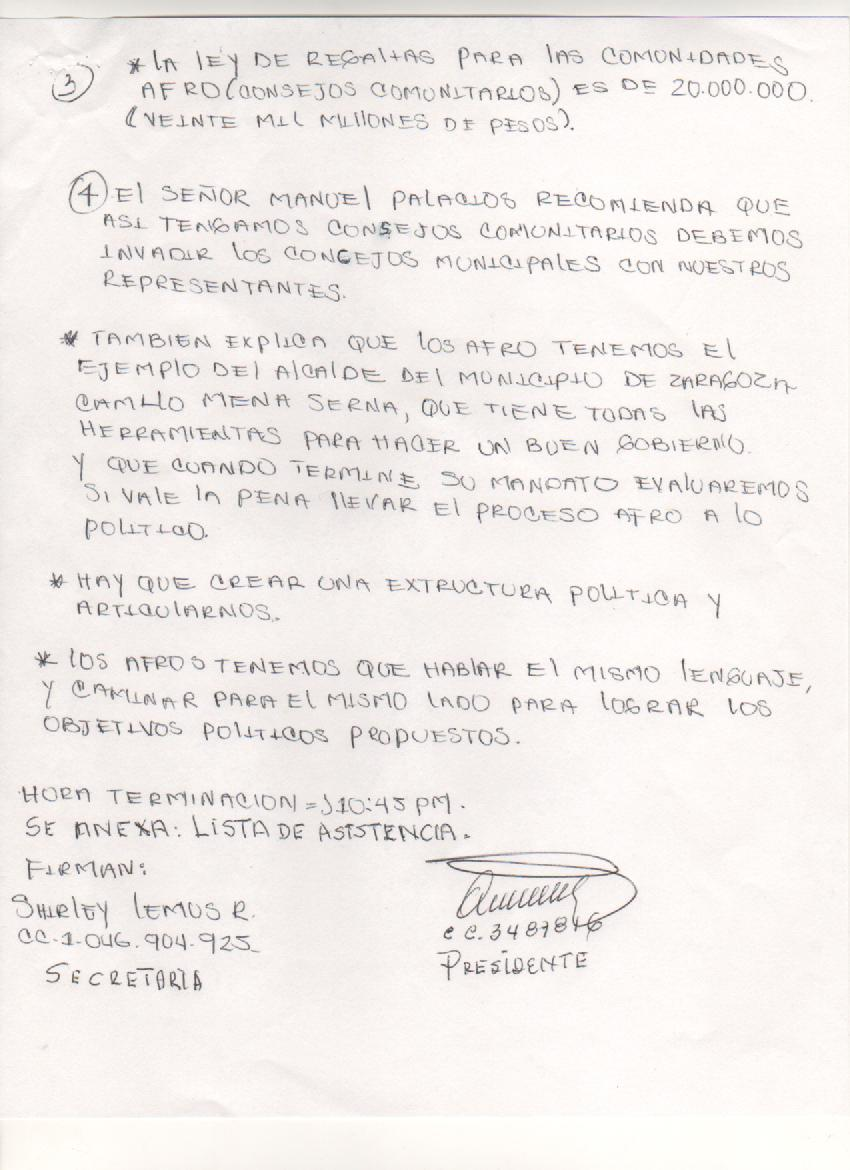 3 * LA LEY DE REGALIAS PARA LAS COMUNIDADES
AFRO (CONSEJOS COMUNITARIOS) ES DE 20.000.000.
(VEINTE MIL MILLONES DE PESOS).
4 El SEÑOR MANUEL PALACIOS RECOMIENDA QUE
ASI TENGAMOS CONSEJOS COMUNITARIOS DEBEMOS
INVADIR LOS CONCEJOS MUNICIPALES CON NUESTROS
REPRESENTANTES.
* TAMBIEN EXPLICA QUE LOS AFRO TENEMOS EL
EJEMPLO DEL ALCALDE DEL MUNICIPIO DE ZARAGOZA
CAMILO MENA SERNA, QUE TIENE TODAS LAS
HERRAMIENTAS PARA HACER UN BUEN GOBIERNO.
Y QUE CUANDO TERMINE SU MANDATO EVALUAREMOS
SI VALE LA PENA LLEVAR EL PROCESO AFRO A LO
POLITICO.
* HAY QUE CREAR UNA EXTRUCTURA POLITICA Y
ARTICULARNOS.
* LOS AFROS TENEMOS QUE HABLAR EL MISMO LENGUAJE,
Y CAMINAR PARA EL MISMO LADO PARA LOGRAR LOS
OBJETIVOS POLITICOS PROPUESTOS.
HORA TERMINACION = 10:45 PM.
SE ANEXA: LISTA DE ASISTENCIA.
FIRMAN:
SHIRLEY LEMUS R.
CC.1.046.904.925
C C. 3487846
SECRETARIA
PRESIDENTE